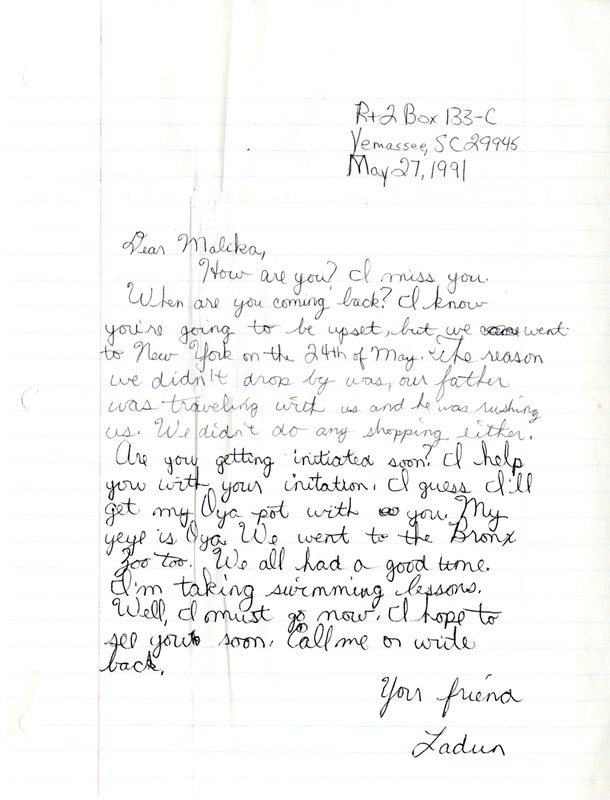 Rt 2 Box 133-C
Yemassee, SC 29945
May 27, 1991
Dear Malika,
How are you? I miss you.
When are you coming back? I know
you're going to be upset, but we came went
to New York on the 24th of May. The reason
we didn't drop by was, our father
was traveling with us and he was rushing
us. We didn't do any shopping either.
Are you getting initiated soon? I help
you with your initation. I guess I'll
get my Oya pot with you. My
yeye is Oya. We went to the Bronx
Zoo too. We all had a good time.
I'm taking swimming lessons.
Well, I must go now. I hope to
see you soon. Call me or write
back.
Your friend
Ladun